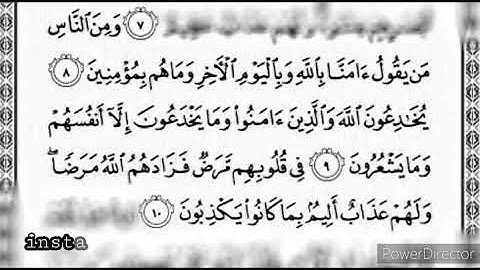 ٧ وَمِنَ ٱلنَّاسِ
مَن يَقُولُ ءَامَنَّا بِٱللَّهِ وَبِٱلْيَوْمِ ٱلْأَخِرِ وَمَا هُم بِمُؤْمِنِينَ ٨
يُخَـٰدِعُونَ ٱللَّهَ وَٱلَّذِينَ ءَامَنُوا۟ وَمَا يَخْدَعُونَ إِلَّآ أَنفُسَهُمْ
وَمَا يَشْعُرُونَ ٩ فِى قُلُوبِهِم مَّرَضٌ فَزَادَهُمُ ٱللَّهُ مَرَضًا ۖ
وَلَهُمْ عَذَابٌ أَلِيمٌۢ بِمَا كَانُوا۟ يَكْذِبُونَ ١٠
insta
PowerDirector